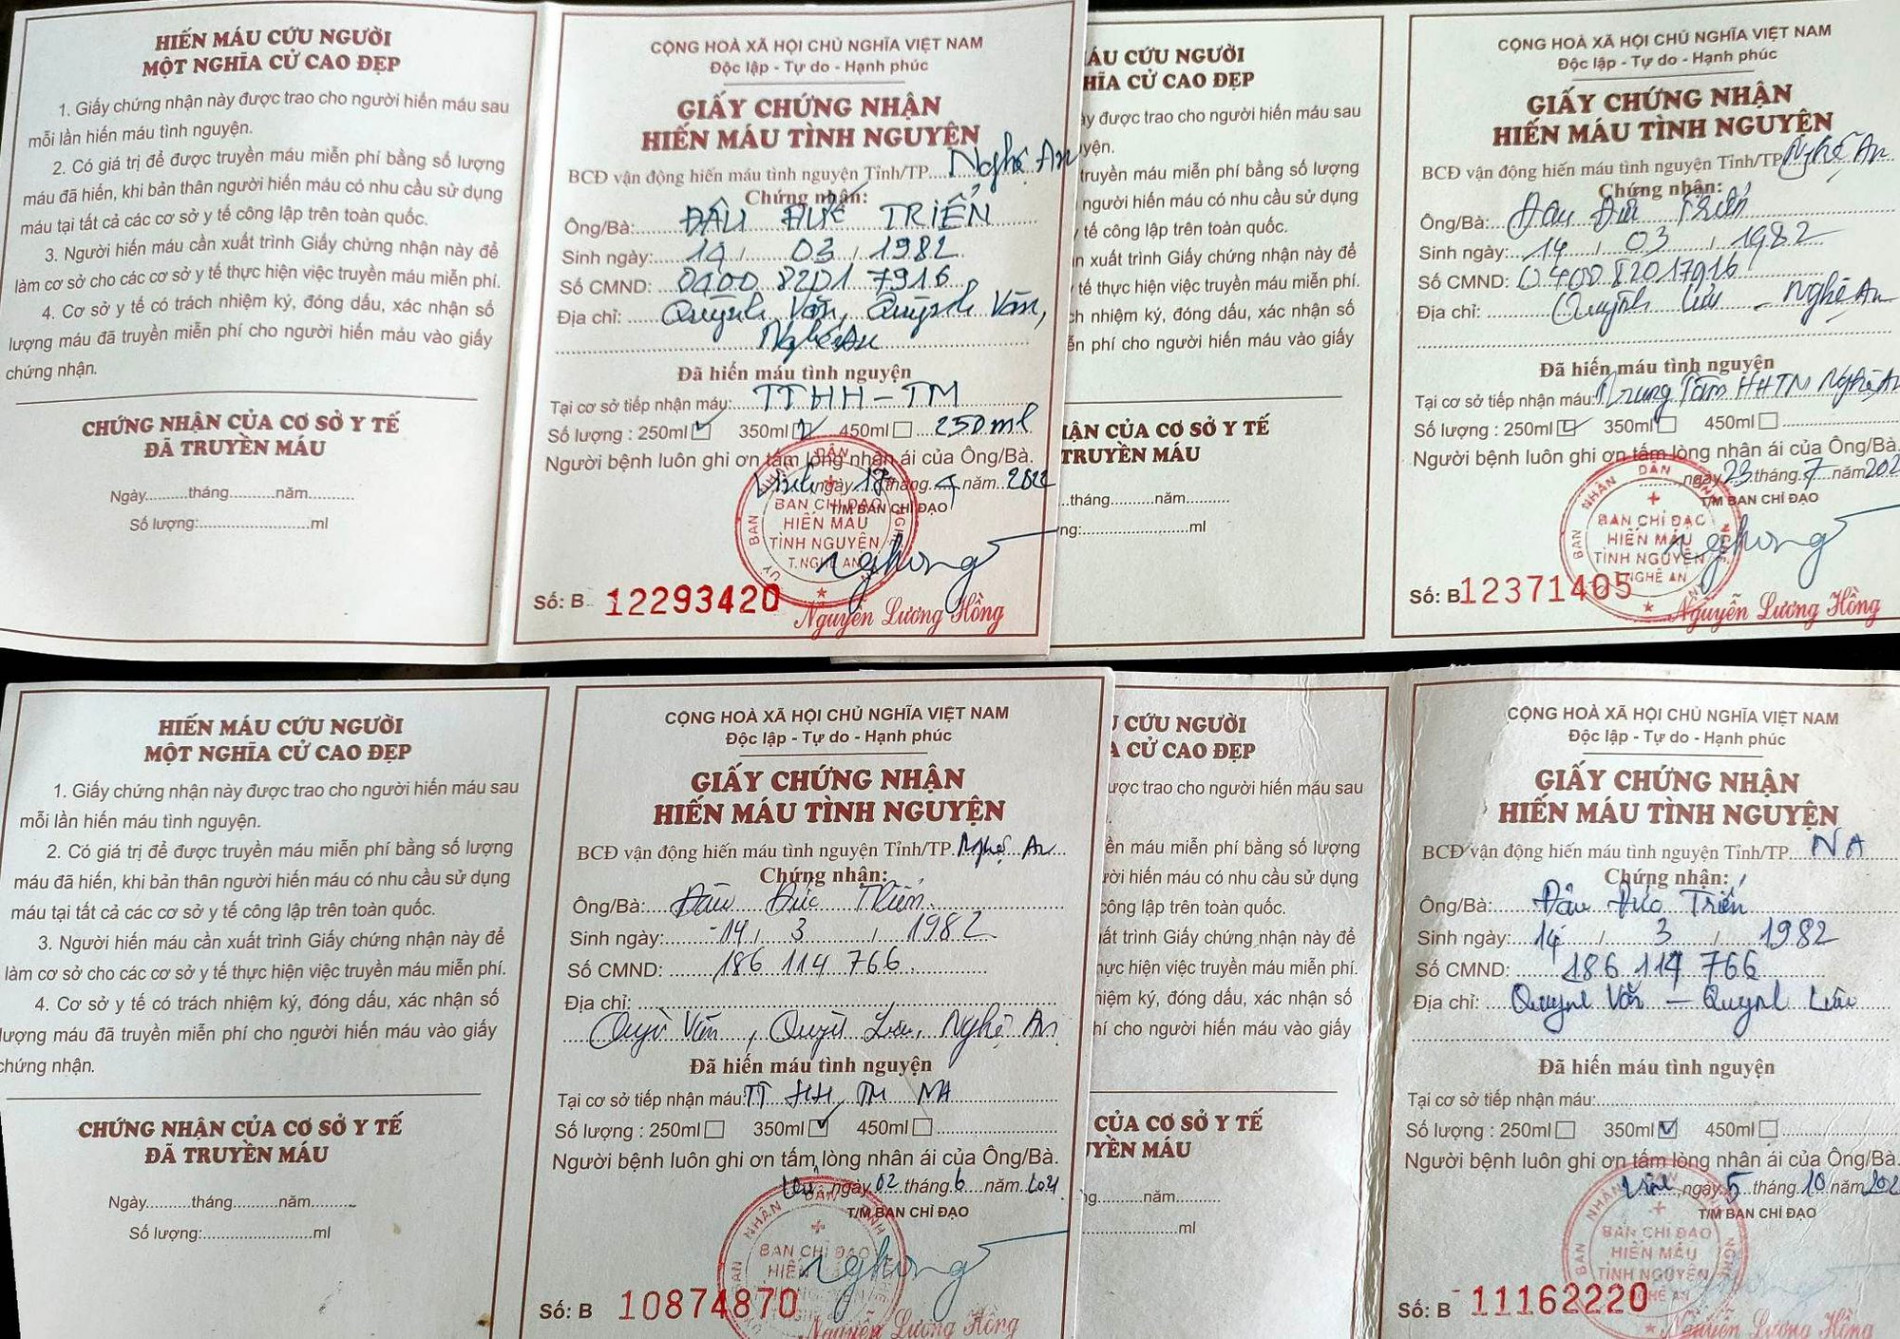 HIẾN MÁU CỨU NGƯỜI
MỘT NGHĨA CỬ CAO ĐẸP
1. Giấy chứng nhận này được trao cho người hiến máu sau
mỗi lần hiến máu tình nguyện.
2. Có giá trị để được truyền máu miễn phí bằng số lượng
máu đã hiến, khi bản thân người hiến máu có nhu cầu sử dụng
máu tại tất cả các cơ sở y tế công lập trên toàn quốc.
3. Người hiến máu cần xuất trình Giấy chứng nhận này để
làm cơ sở cho các cơ sở y tế thực hiện việc truyền máu miễn phí.
4. Cơ sở y tế có trách nhiệm ký, đóng dấu, xác nhận số
lượng máu đã truyền miễn phí cho người hiến máu vào giấy
chứng nhận.
CHỨNG NHẬN CỦA CƠ SỞ Y TẾ
ĐÃ TRUYỀN MÁU
Ngày..........tháng..........năm..........
Số lượng:..........ml
CỘNG HOÀ XÃ HỘI CHỦ NGHĨA VIỆT NAM
Độc lập - Tự do - Hạnh phúc
GIẤY CHỨNG NHẬN
HIẾN MÁU TÌNH NGUYỆN
BCĐ vận động hiến máu tình nguyện Tỉnh/TP....Nghệ An
Chứng nhận:
Ông/Bà: ĐẬU ĐỨC TRIỂN
Sinh ngày: 14 / 03 / 1982
Số CMND: 0400 8201 7916
Địa chỉ: Quỳnh Văn, Quỳnh Văn,
Nghệ An
Đã hiến máu tình nguyện
Tại cơ sở tiếp nhận máu: TTHH-TM
Số lượng : 250ml 350ml 450ml 250ml
Người bệnh luôn ghi ơn tấm lòng nhân ái của Ông/Bà.
Vinh ngày 17 tháng năm 2022
T/M BAN CHỈ ĐẠO
BAN CHỈ ĐẠO
HIẾN MÁU
TÌNH NGUYỆN
T.NGHỆ AN
Số: B 12293420
Nguyễn Lương Hồng
ÁU CỨU NGƯỜI
HĨA CỬ CAO ĐẸP
ày được trao cho người hiến máu sau
uyện.
truyền máu miễn phí bằng số lượng
người hiến máu có nhu cầu sử dụng
tế công lập trên toàn quốc.
n xuất trình Giấy chứng nhận này để
tế thực hiện việc truyền máu miễn phí.
ch nhiệm ký, đóng dấu, xác nhận số
ễn phí cho người hiến máu vào giấy
ẬN CỦA CƠ SỞ Y TẾ
TRUYỀN MÁU
..tháng..........năm..........
ng:..........ml
CỘNG HOÀ XÃ HỘI CHỦ NGHĨA VIỆT NAM
Độc lập - Tự do - Hạnh phúc
GIẤY CHỨNG NHẬN
HIẾN MÁU TÌNH NGUYỆN
BCĐ vận động hiến máu tình nguyện Tỉnh/TP Nghệ An
Chứng nhận:
Ông/Bà: Đậu Đức Triển
Sinh ngày: 14 / 03 / 1982
Số CMND: 040082017916
Địa chỉ: Quỳnh Lưu - Nghệ An
Đã hiến máu tình nguyện
Tại cơ sở tiếp nhận máu: Trung Tâm HHTM Nghệ An
Số lượng : 250ml 350ml 450ml
Người bệnh luôn ghi ơn tấm lòng nhân ái của Ông/Bà.
ngày 23 tháng 7 năm 202
T/M BAN CHỈ ĐẠO
BAN CHỈ ĐẠO
HIẾN MÁU
TÌNH NGUYỆN
NGHỆ AN
Số: B 12371405
Nguyễn Lương Hồng
HIẾN MÁU CỨU NGƯỜI
MỘT NGHĨA CỬ CAO ĐẸP
1. Giấy chứng nhận này được trao cho người hiến máu sau
mỗi lần hiến máu tình nguyện.
2. Có giá trị để được truyền máu miễn phí bằng số lượng
máu đã hiến, khi bản thân người hiến máu có nhu cầu sử dụng
máu tại tất cả các cơ sở y tế công lập trên toàn quốc.
3. Người hiến máu cần xuất trình Giấy chứng nhận này để
làm cơ sở cho các cơ sở y tế thực hiện việc truyền máu miễn phí.
4. Cơ sở y tế có trách nhiệm ký, đóng dấu, xác nhận số
lượng máu đã truyền miễn phí cho người hiến máu vào giấy
chứng nhận.
CHỨNG NHẬN CỦA CƠ SỞ Y TẾ
ĐÃ TRUYỀN MÁU
Ngày..........tháng..........năm..........
Số lượng:..........ml
CỘNG HOÀ XÃ HỘI CHỦ NGHĨA VIỆT NAM
Độc lập - Tự do - Hạnh phúc
GIẤY CHỨNG NHẬN
HIẾN MÁU TÌNH NGUYỆN
BCĐ vận động hiến máu tình nguyện Tỉnh/TP Nghệ An
Chứng nhận:
Ông/Bà: Đậu Đức Triển
Sinh ngày: 14 / 3 / 1982
Số CMND: 186 114 766
Địa chỉ:
Quỳ Văn, Quỳ Lưu, Nghệ An
Đã hiến máu tình nguyện
Tại cơ sở tiếp nhận máu: TT HH TM NA
Số lượng : 250ml 350ml 450ml
Người bệnh luôn ghi ơn tấm lòng nhân ái của Ông/Bà.
ngày 02 tháng 6 năm 2021
T/M BAN CHỈ ĐẠO
BAN CHỈ ĐẠO
Số: B 10874870
Nguyễn Lương Hồng
U CỨU NGƯỜI
A CỬ CAO ĐẸP
ược trao cho người hiến máu sau
ền máu miễn phí bằng số lượng
ười hiến máu có nhu cầu sử dụng
công lập trên toàn quốc.
ất trình Giấy chứng nhận này để
hực hiện việc truyền máu miễn phí.
hiệm ký, đóng dấu, xác nhận số
hí cho người hiến máu vào giấy
CỦA CƠ SỞ Y TẾ
YỀN MÁU
g..........năm..........
..........ml
CỘNG HOÀ XÃ HỘI CHỦ NGHĨA VIỆT NAM
Độc lập - Tự do - Hạnh phúc
GIẤY CHỨNG NHẬN
HIẾN MÁU TÌNH NGUYỆN
BCĐ vận động hiến máu tình nguyện Tỉnh/TP NA
Chứng nhận:
Ông/Bà: Đậu Đức Triển
Sinh ngày: 14 / 3 / 1982
Số CMND: 186 114 766
Địa chỉ: Quỳnh Văn - Quỳnh Lưu
Đã hiến máu tình nguyện
Tại cơ sở tiếp nhận máu:
Số lượng : 250ml 350ml 450ml
Người bệnh luôn ghi ơn tấm lòng nhân ái của Ông/Bà.
Vinh, ngày 5 tháng 10 năm 202
T/M BAN CHỈ ĐẠO
BAN CHỈ ĐẠO
HIẾN MÁU
TÌNH NGUYỆN
NGHỆ AN
Số: B 11162220
Nguyễn Lương Hồng